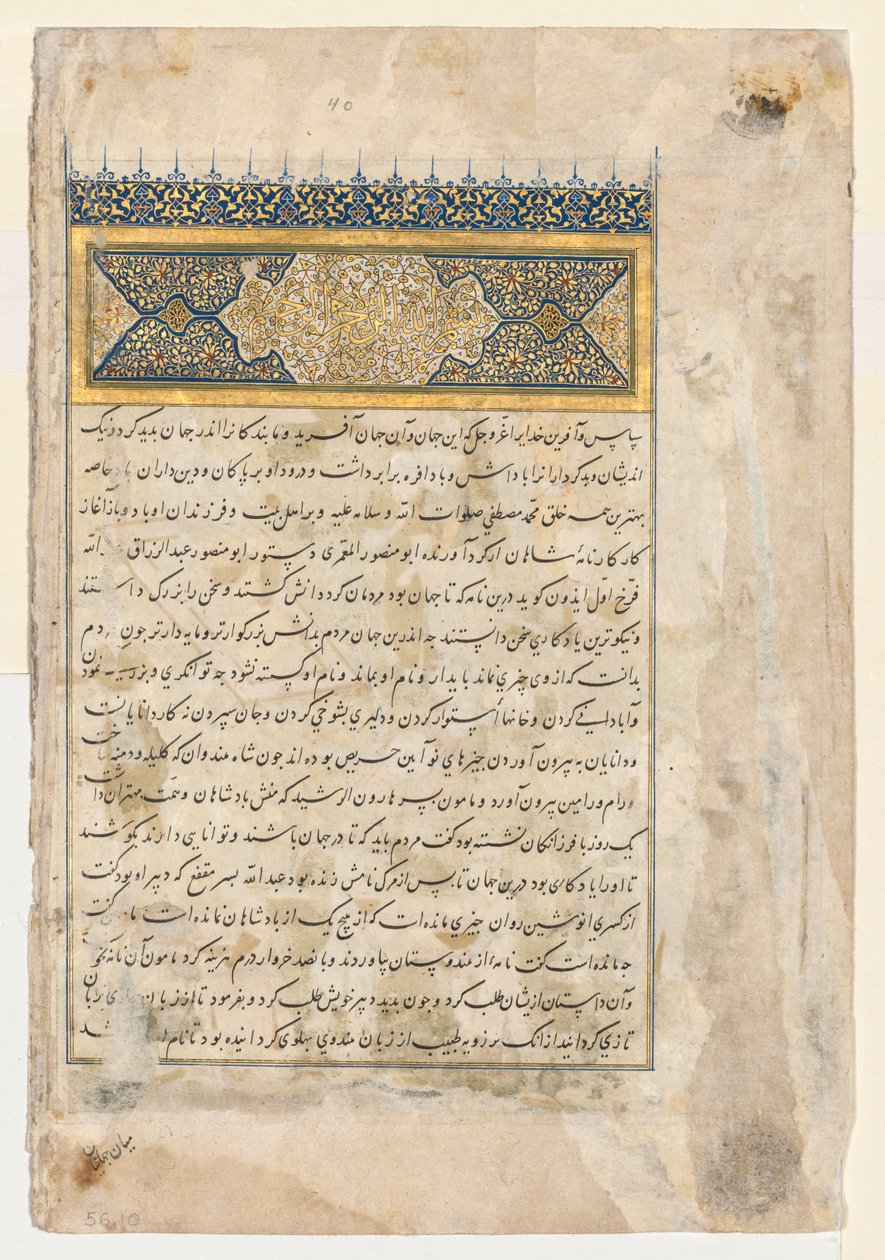 40
بسم الله الرحمن الرحیم
سپاس و آفرین خدایرا عزّ و جل که این جهان و آن جهان آفرید و ما بندکانرا اندر جهان بدید کرد و نیک
اندیشان و بدکردارانرا باداش و بادافره برابر داشت و درود او بر پاکان و دین داران باد خاصه
بهترین همه خلق محمّد مصطفی صلوات الله و سلامه علیه و بر اهل بیت و فرزندان او باد و باد آغاز
کار کارنامهٔ شاهان از کردآورنده ابو منصور المعمّری دستور ابو منصور عبد الرزاق الله
فرّخ اوّل ایذون کوید درین نامه که تا جهان بود مردمان کرد دانش کشتند و سخن را بزرک
و نیکوترین یادکاری سخن دانستند جه اندرین جهان مردم بدانش بزرکوارتر و مایه دارتر جون
بدانست که از وی جیزی نماند بایدار و نام او بماند و نام او کسسته نشود جه توانکری و نمودن
و آبادانی کردن و خانها استوار کردن و دلیری بشوخی کردن و جان سپردن نه کار دانایانست
و دانایان به بیرون آوردن جیزهای نو آین حریص بوده اند جون شاه هندوان که کلیله و دمنه ساخت
و رام و رامین بیرون آورد و مامون بسر هارون الرشید که منش بادشاهان و همّت مهتران داشت
یک روز با فرزانکان نشسته بود کفت مردم باید که تا در جهان باشند و توانایی دارند بکوشند
تا اورا یادکاری بود درین جهان تا بس از مرک نامش زنده بود عبد الله بسر مقفع که دبیر او بود کفت
از کسری انوشین روان جیزی مانده است که از هیج یک از بادشاهان نمانده است کفت
جه مانده است کفت نامهٔ از هندوستان بیاوردند و بانصد خروار درم هزینه کرد مامون آن نامه بخو
و آن داستان ازیشان طلب کرد و جون بدید دبیر خویش طلب کرد و بفرمود تا از زبان
تازی کردانید از انک برزویه طبیب از زبان هندوی بهلوی کردانیده بود تا نام
56.10